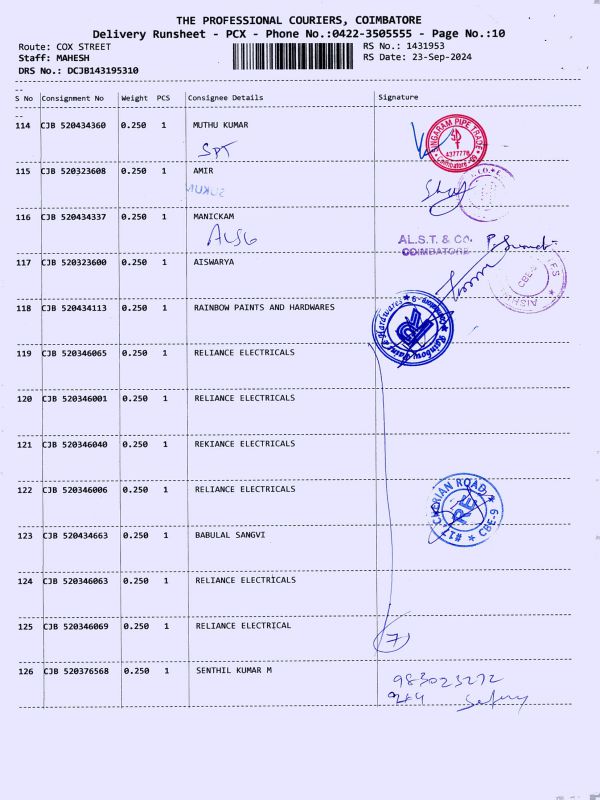 THE PROFESSIONAL COURIERS, COIMBATORE
Delivery Runsheet - PCX - Phone No.:0422-3505555 - Page No.:10
Route: COX STREET RS No.: 1431953
Staff: MAHESH RS Date: 23-Sep-2024
DRS No.: DCJB143195310
--
S No Consignment No Weight PCS Consignee Details Signature
--
114 CJB 520434360 0.250 1 MUTHU KUMAR
SPT
SINGARAM PIPE TRADERS
4377778
115 CJB 520323608 0.250 1 AMIR
116 CJB 520434337 0.250 1 MANICKAM
ALSG
AL.S.T. & CO.
COIMBATORE
117 CJB 520323600 0.250 1 AISWARYA
CBE-9
118 CJB 520434113 0.250 1 RAINBOW PAINTS AND HARDWARES
Rainbow Paints & Hardwares * Coimbatore-9 *
119 CJB 520346065 0.250 1 RELIANCE ELECTRICALS
120 CJB 520346001 0.250 1 RELIANCE ELECTRICALS
121 CJB 520346040 0.250 1 REKIANCE ELECTRICALS
122 CJB 520346006 0.250 1 RELIANCE ELECTRICALS
ROAD, * CBE-9 * #17
123 CJB 520434663 0.250 1 BABULAL SANGVI
124 CJB 520346063 0.250 1 RELIANCE ELECTRICALS
125 CJB 520346069 0.250 1 RELIANCE ELECTRICAL
7
126 CJB 520376568 0.250 1 SENTHIL KUMAR M